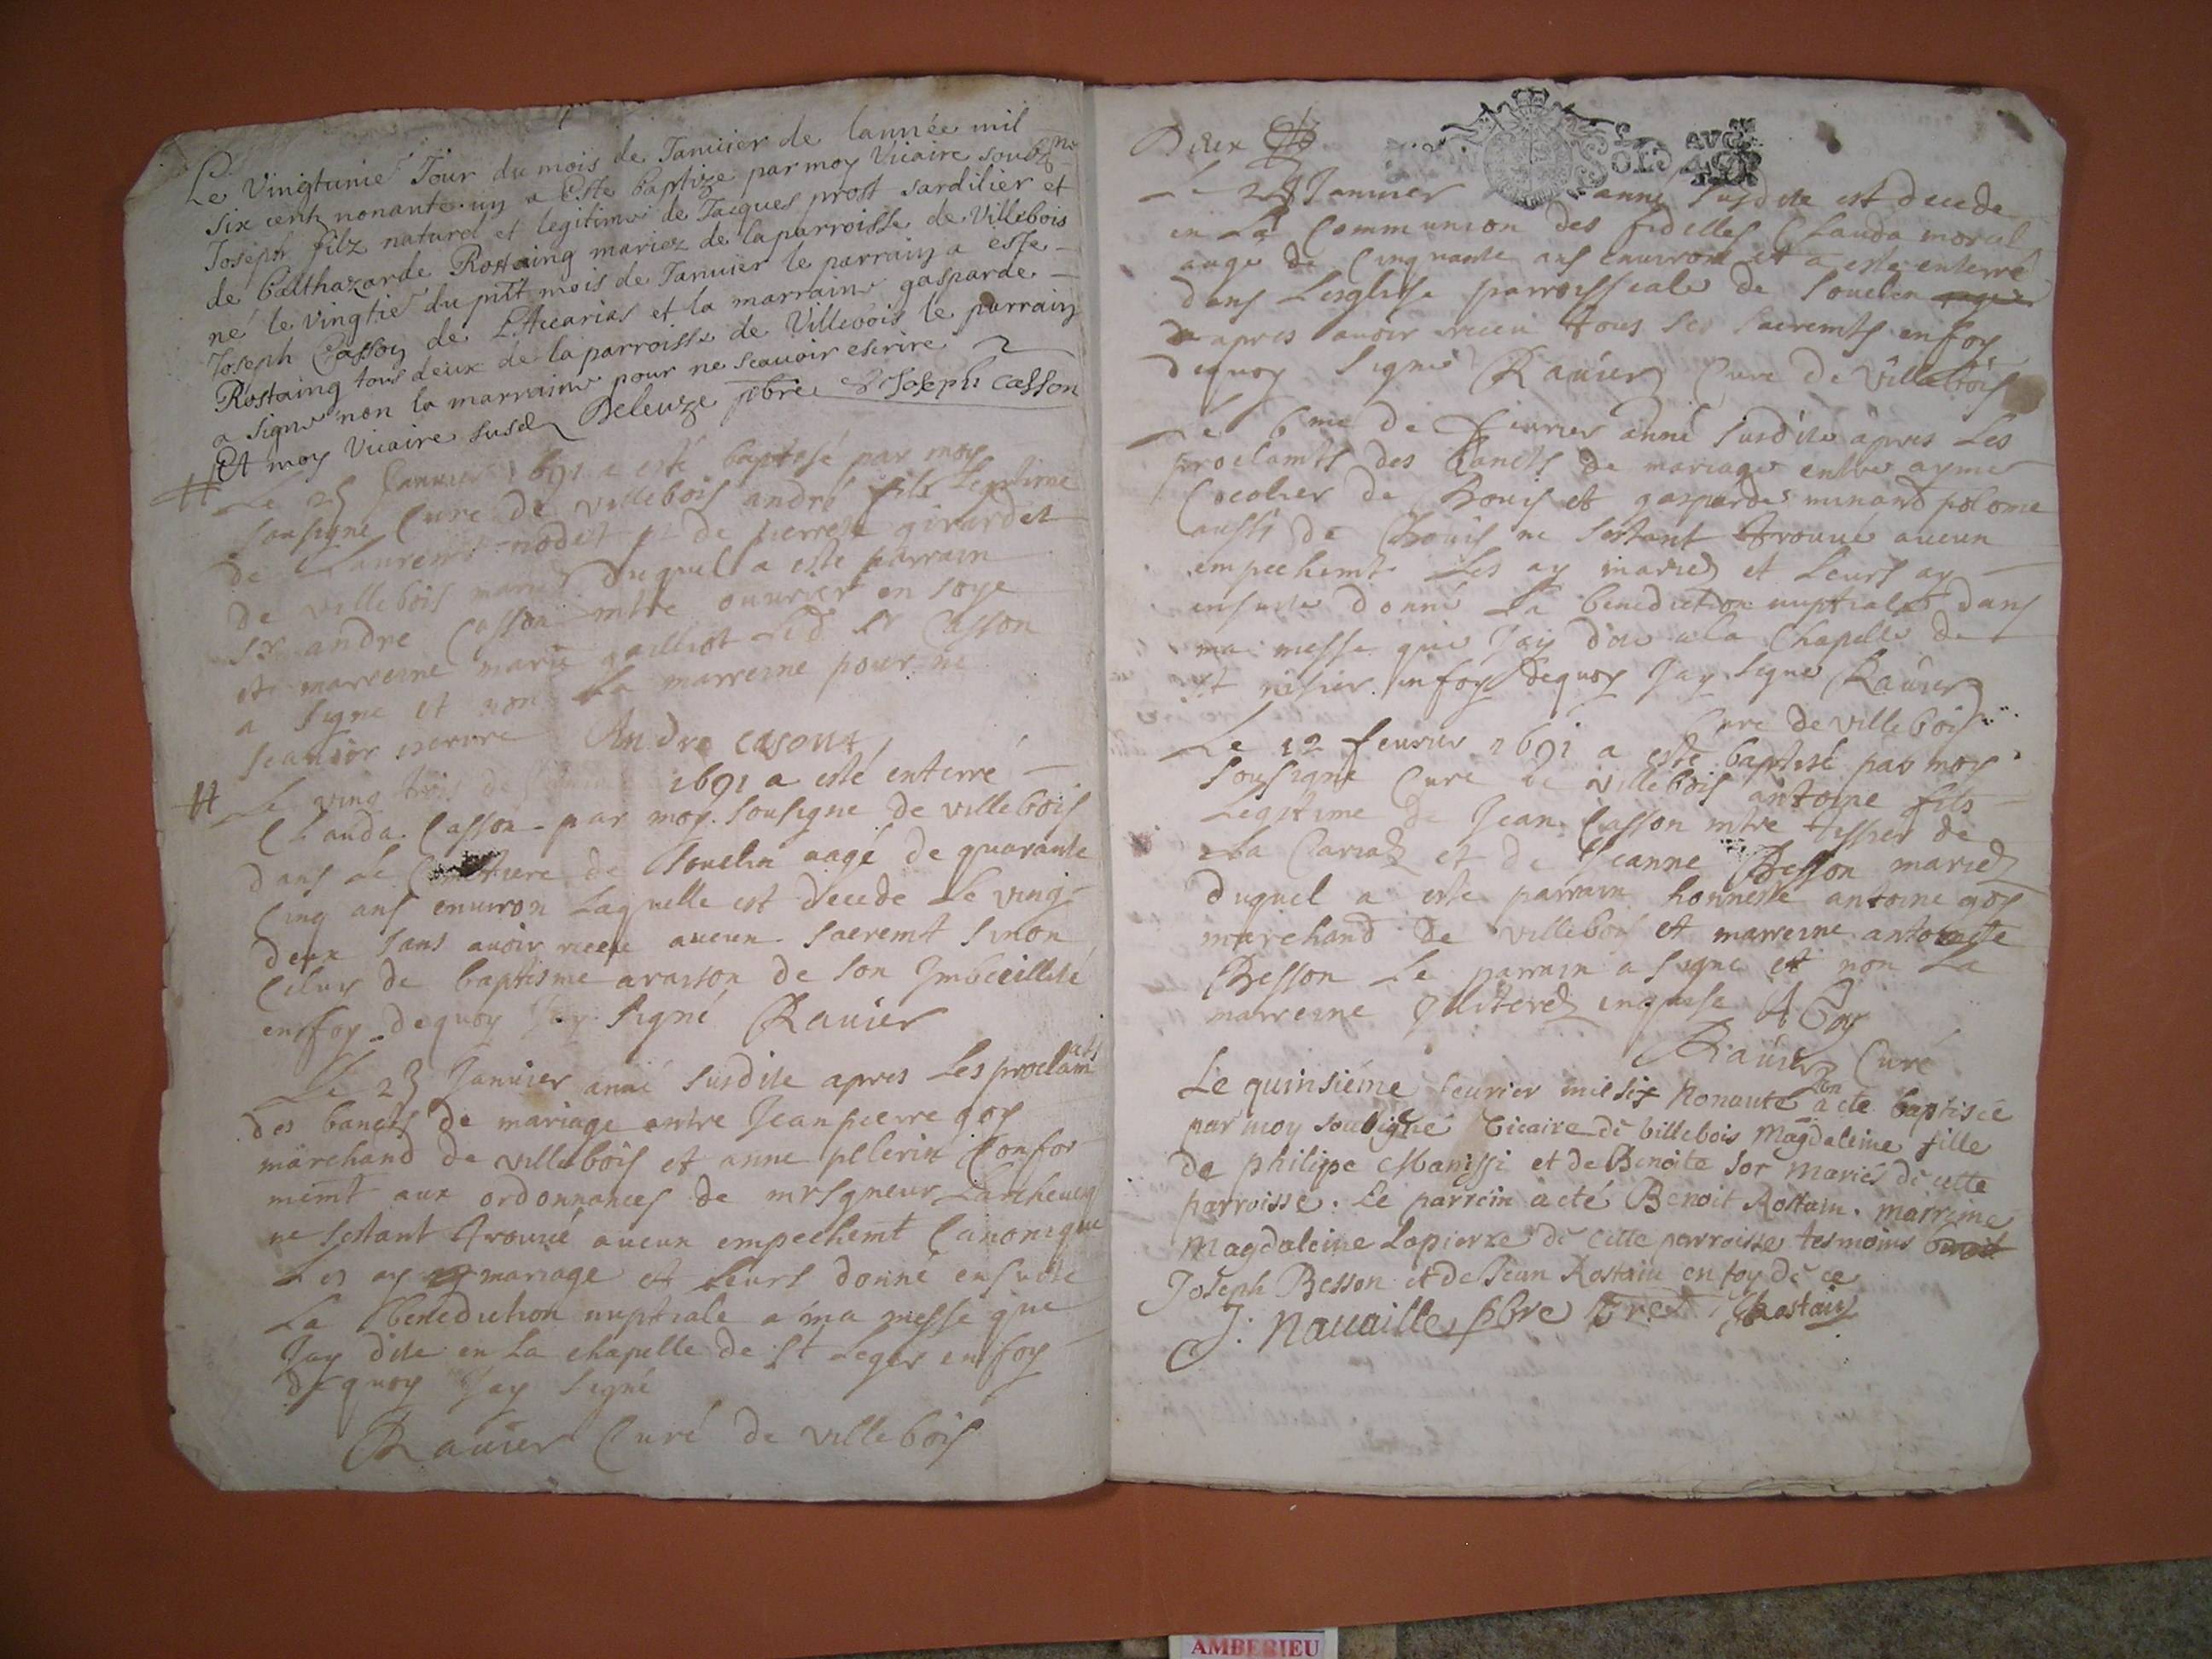 Le Vingtunie Jour du mois de Januier de lannée mil
six centz nonante un a Este baptize par moy Vicaire soubzne
Joseph filz naturel et legitime de Jacques prost sardilier et
de balthazarde Rostaing mariez de la parroisse de Villebois
né le vingtie du pnt mois de Januier le parrain a este
Joseph Casson de L'Accarias et la marraine gasparde
Rostaing tous deux de la parroisse de Villebois le parrain
a signe non la marraine pour ne scauoir escrire
Et moy Vicaire susd Deleuze pbre Joseph Casson
Le 25 Januier 1691 a esté baptisé par moy
sousigne Curé de villebois andré fils Legitime
de Laurent nodet et de pierrete girardet
de villebois mariez duquel a este parrain
Sr andre Casson mtre ouurier en soye
et marreine marie gailliot Led Sr Casson
a signe et non La marreine pour ne
scauoir escrire Andre Cason
Le ving trois de 1691 a esté enterré
Clauda Casson par moy sousigne de villebois
dans Le Cimetiere de Souclin aagé de quarante
Cinq ans enuiron Laquelle est decede Le ving
deux sans auoir receu aucun sacremt sinon
Celuy de baptisme a raison de son Imbecillité
en foy dequoy Jay signé Rauier
Le 23 Januier anné susdite apres Les proclamats
des bancts de mariage entre Jean pierre goy
marchand de villebois et anne pelerin Confor
memt aux ordonnances de mrsgneur Larcheuesq
ne sestant trouué aucun empechemt Canonique
Les ay mariage et leurs donné ensuite
La benediction nuptiale a ma messe que
Jay dite en La chapelle de St Leger en foy
dequoy Jay signé
Rauier Curé de villebois
Deux
SOLD AVGM
Le 24 Januier anné susdite est decede
en La Communion des fidelles Clauda morel
aage de Cinquante ans enuiron et a esté enterré
dans Lesglise parroissiale de Souclin
apres auoir receu tous ses sacremts en foy
dequoy signé Rauier Cure de Villebois
Le 6me de feurier anné susdite apres Les
proclamts des bancts de mariage entre aymé
Cocolier de Bouis et gasparde minand polome
aussi de Bouis ne sestant trouué aucun
empechemt Les ay mariez et Leurs ay
ensuite donné La benediction nuptiale dans
ma messe que Jay dite a la Chapelle de
St nisier en foy dequoy Jay signe Rauier
Curé de villebois
Le 12 feurier 1691 a esté baptisé par moy
sousigne Curé de villebois antoine fils
Legitime de Jean Casson mtre tissier de
La Cariaz et de Jeanne Besson mariez
duquel a este parrain honneste antoine goy
marchand de villebois et marreine antoinete
Besson Le parrain a signe et non La
marreine illiterez enquise A Goy
Rauier Curé
Le quinsiéme feurier mil six nonante un a eté baptisée
par moy soubigné Vicaire de villebois Magdaleine fille
de philipe Manissi et de Benoite sor Mariés de cette
parroisse. Le parrein a eté Benoit Rostain. marreine
Magdaleine Lapierre de cette parroisse tesmoins
Joseph Besson et de Jean Rostain en foy de ce
J. Nauaille pbre vre Rostain
AMBERIEU